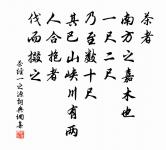 茶者
南方之嘉木也
一尺二尺
乃至數十尺
其巴山峽川有兩
人合抱者
伐而掇之
茶經一之源